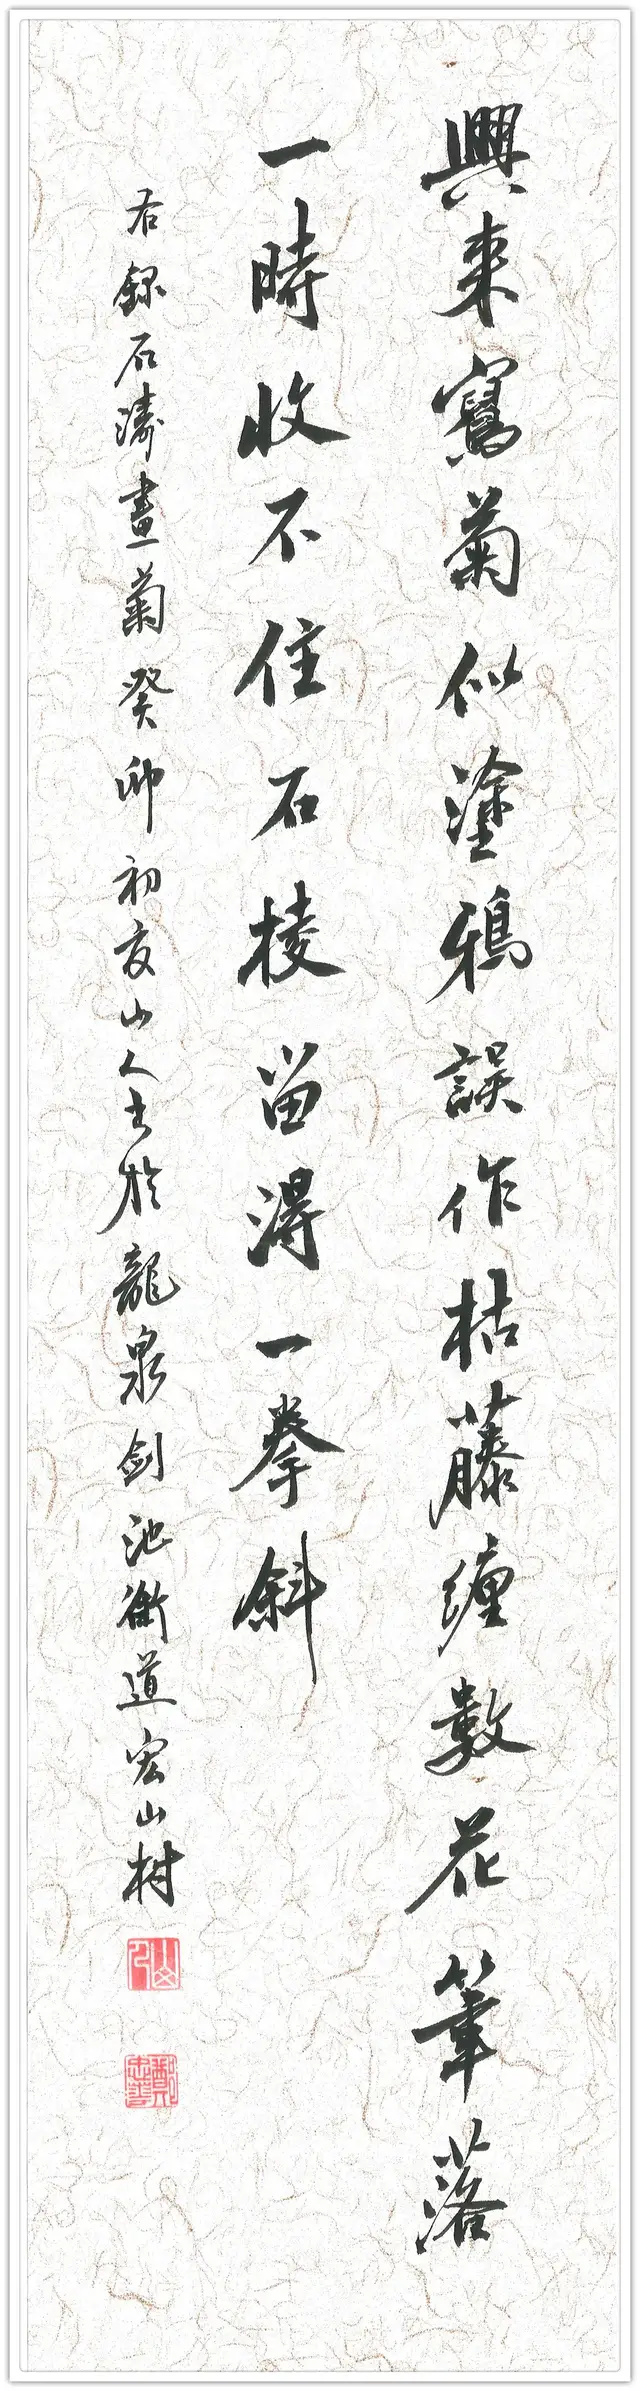 興來寫菊似塗鴉誤作枯藤缠數花筆落
一時收不住石棱留得一拳斜
右錄石濤畫菊癸卯初夜山人書於龍泉劍池街道宏山村